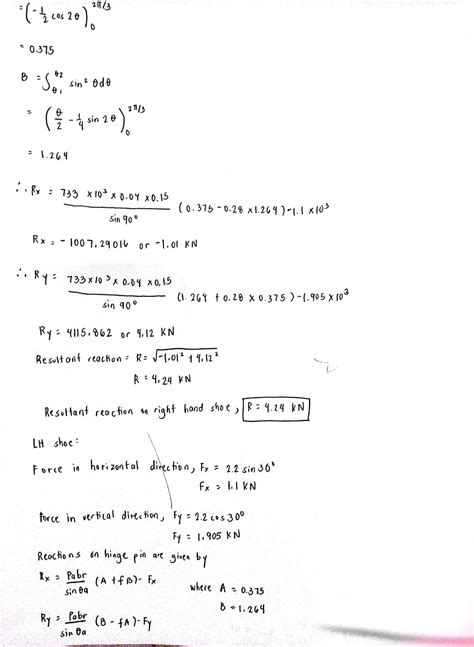 = (-1/2 cos 2θ)₀^2π/3
= 0.375
B = ∫θ₁^θ2 sin² θdθ
= (θ/2 - 1/4 sin 2θ)₀^2π/3
= 1.264
∴ Rx = 733 x10³ x 0.04 x0.15 / sin 90° (0.375 - 0.28 x1.264) -1.1 x10³
Rx = -1007.29016 or -1.01 KN
∴ Ry = 733x10³x 0.04 x0.15 / sin 90° (1.264 + 0.28 x 0.375) -1.905 x10³
Ry = 4115.862 or 4.12 KN
Resultant reaction = R= √-1.01² + 4.12²
R = 4.24 KN
Resultant reaction on right hand shoe, R = 4.24 KN
LH shoe:
Force in horizontal direction, Fx = 2.2 sin 30°
Fx = 1.1 KN
Force in vertical direction, Fy = 2.2 cos 30°
Fy = 1.905 KN
Reactions on hinge pin are given by
Rx = Pabr / sin θa (A + fB) - Fx where A = 0.375
B = 1.264
Ry = Pabr / sin θa (B - fA) - Fy